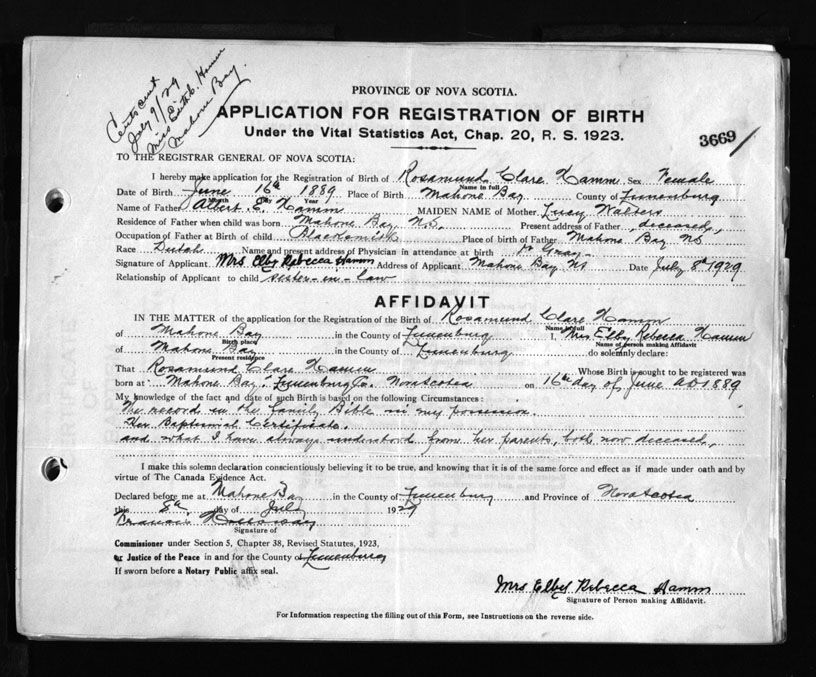 Cert sent
July 9/29
Miss Edith C. Hamm
Mahone Bay.
PROVINCE OF NOVA SCOTIA.
APPLICATION FOR REGISTRATION OF BIRTH
Under the Vital Statistics Act, Chap. 20, R. S. 1923.
3669
TO THE REGISTRAR GENERAL OF NOVA SCOTIA:
I hereby make application for the Registration of Birth of Rosamund Clare Hamm Sex Female
Name in full
Date of Birth June 16th 1889 Place of Birth Mahone Bay County of Lunenburg
Month Day Year
Name of Father Albert E. Hamm MAIDEN NAME of Mother Lucy Walters
Residence of Father when child was born Mahone Bay N.S. Present address of Father deceased,
Occupation of Father at Birth of child Blacksmith Place of birth of Father Mahone Bay NS
Race Dutch Name and present address of Physician in attendance at birth Dr Gray
Signature of Applicant Mrs Elby Rebecca Hamm Address of Applicant Mahone Bay NS Date July 8th 1929
Relationship of Applicant to child sister-in-law
AFFIDAVIT
IN THE MATTER of the application for the Registration of the Birth of Rosamund Clare Hamm
Name in full
of Mahone Bay in the County of Lunenburg I, Mrs Elby Rebecca Hamm
Birth place Name of person making Affidavit
of Mahone Bay in the County of Lunenburg do solemnly declare:
Present residence
That Rosamund Clare Hamm Whose Birth is sought to be registered was
born at Mahone Bay, Lunenburg Co. Nova Scotia on 16th day of June AD 1889
My knowledge of the fact and date of such Birth is based on the following Circumstances:
The record in the family Bible in my possession.
Her Baptismal Certificate.
and what I have always understood from her parents, both now deceased,
I make this solemn declaration conscientiously believing it to be true, and knowing that it is of the same force and effect as if made under oath and by
virtue of The Canada Evidence Act.
Declared before me at Mahone Bay in the County of Lunenburg and Province of Nova Scotia
this 8th day of July 1929
Signature of
Commissioner under Section 5, Chapter 38, Revised Statutes, 1923,
or Justice of the Peace in and for the County of Lunenburg
If sworn before a Notary Public affix seal.
Mrs Elby Rebecca Hamm
Signature of Person making Affidavit.
For Information respecting the filling out of this Form, see Instructions on the reverse side.